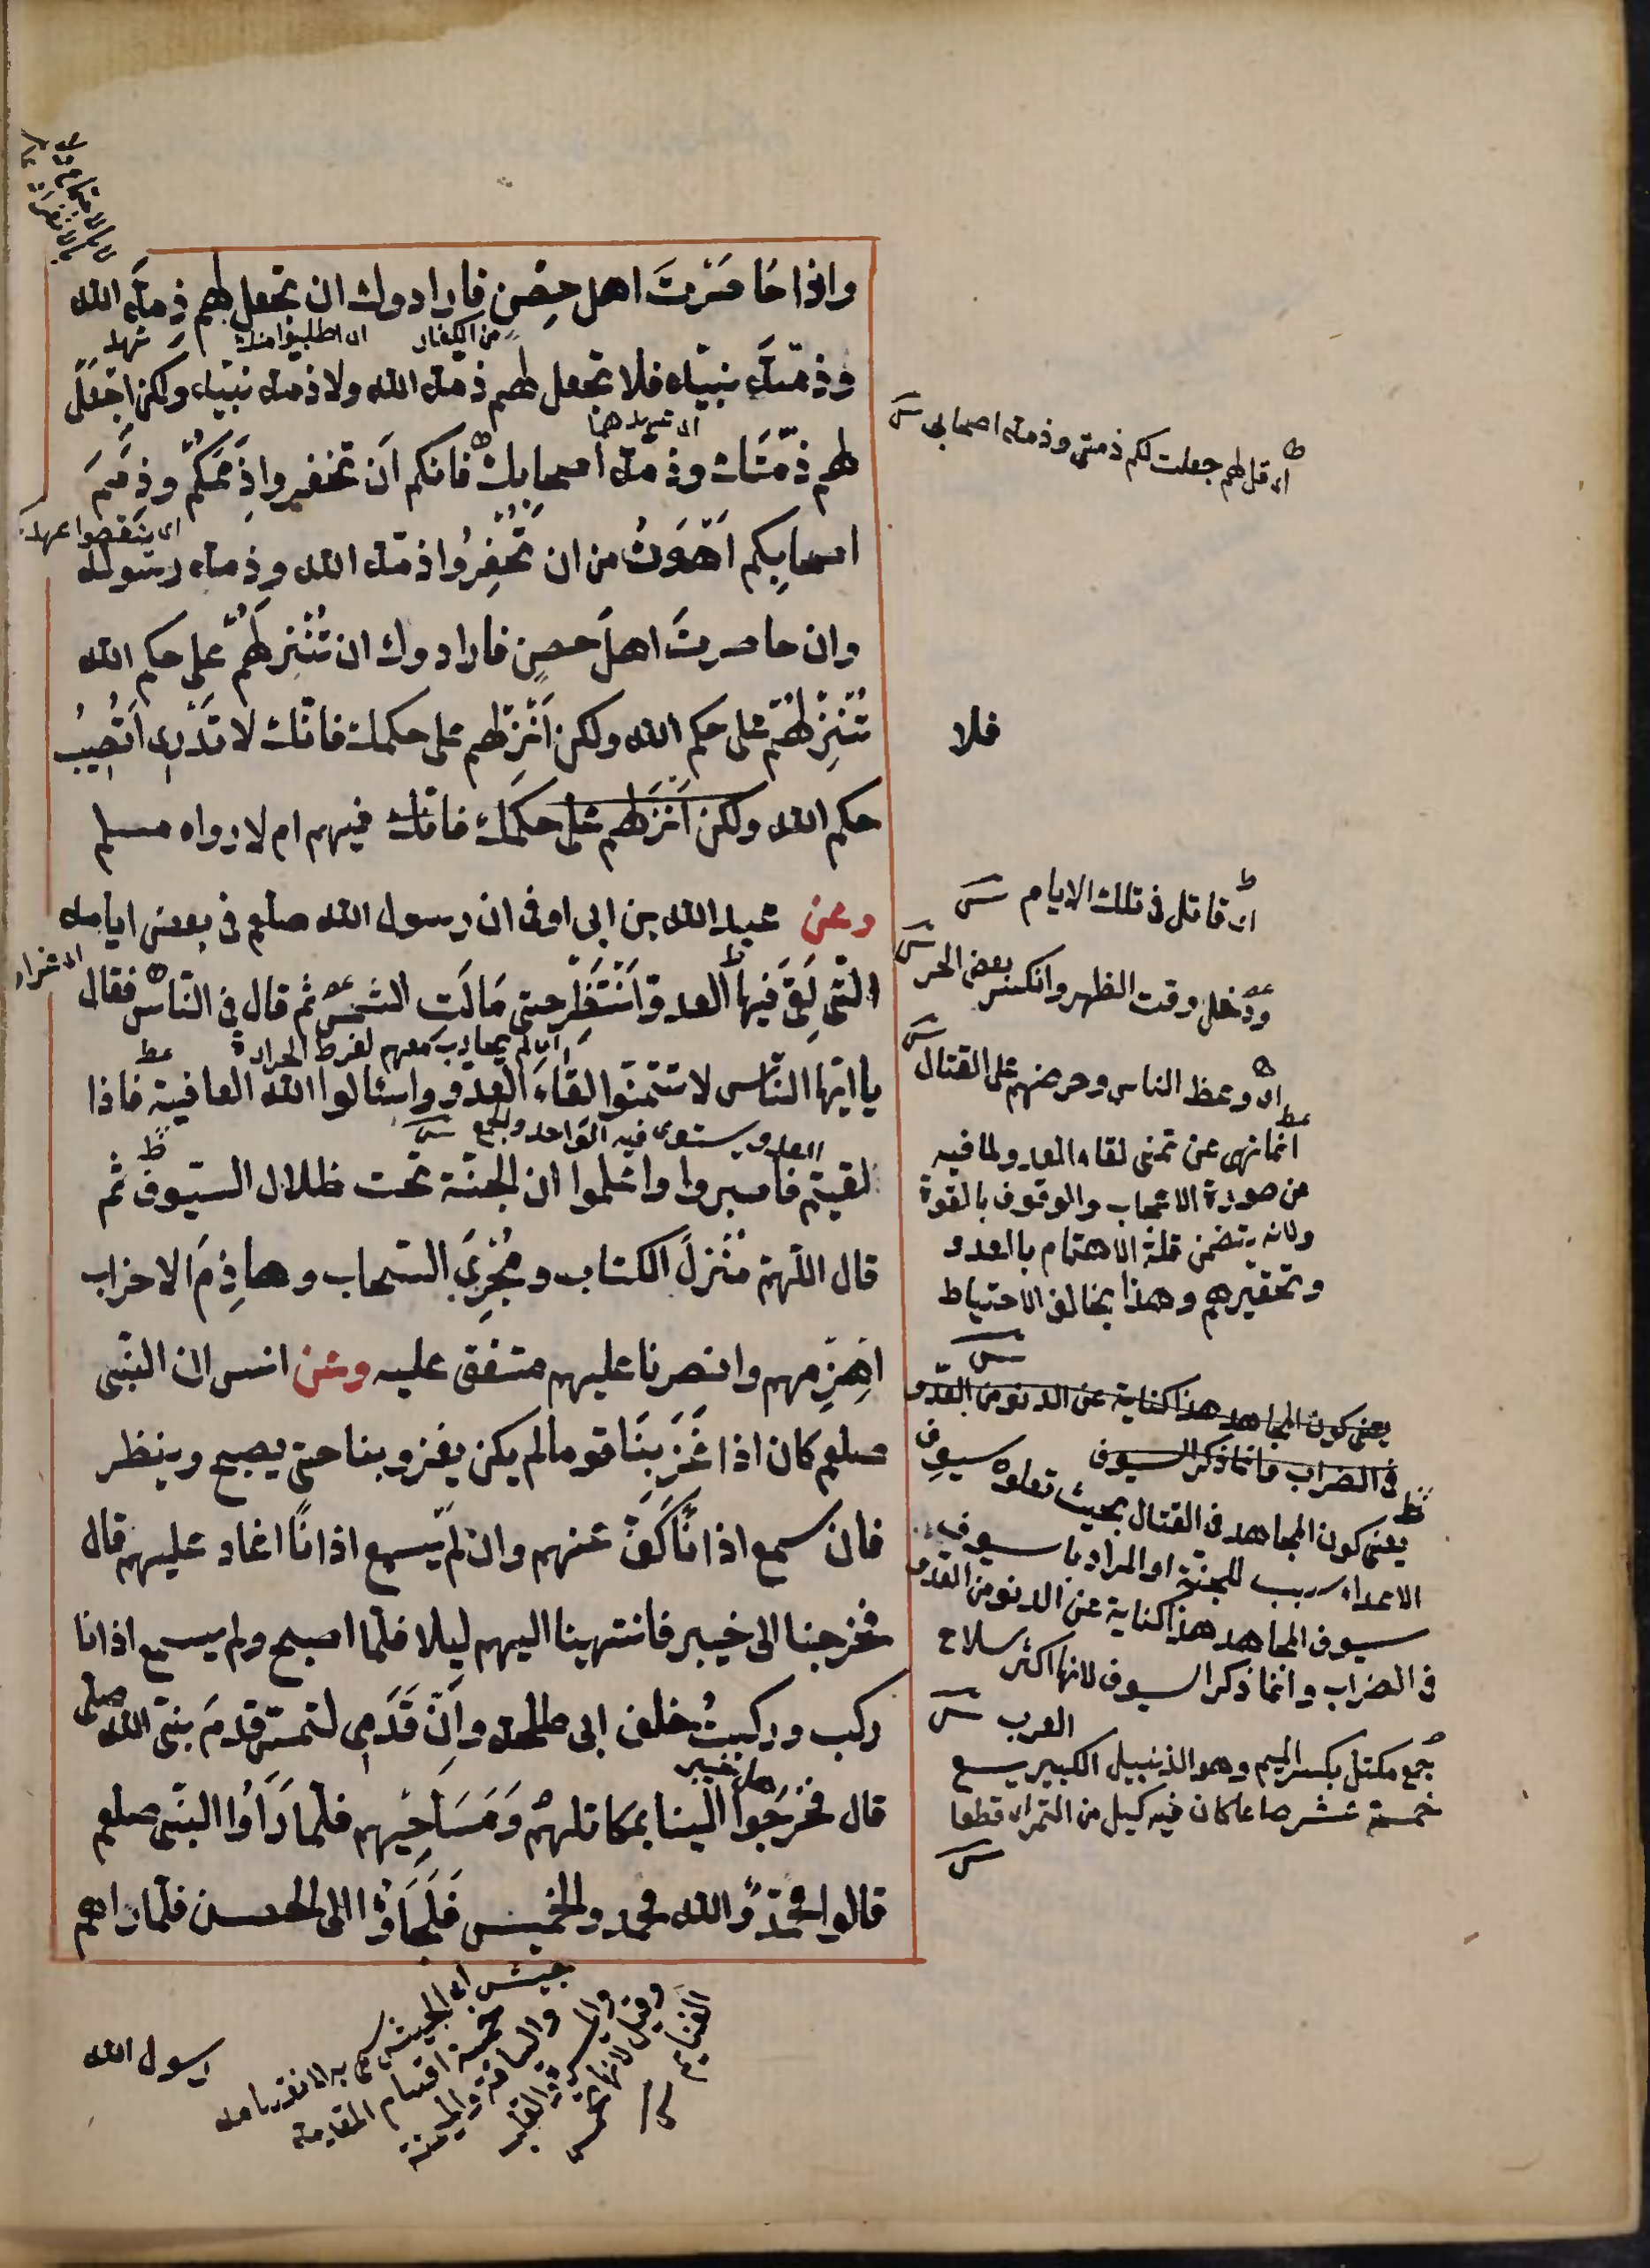 واذا حَاصَرْتَ اهل حِصْنٍ فارادوك ان تجعل لهم ذمةَ الله
من الكفار
اى طلبوا منك
عهد
وذمّةَ نبيّه فلا تجعل لهم ذمة الله ولا ذمة نبيّه ولكن اجْعَلْ
لهم ذمّتَك وذمة اصحابك فانكم اَن تخفروا ذِمَمَكُمْ وذِمَمَ
اى ينقضوا عهد
اصحابِكم اَهْوَنُ من ان تُخْفِرُوا ذمّة الله وذمة رسوله
وان حاصرتَ اهلَ حصنٍ فارادوك ان تُنْزِلَهُمْ على حكم الله
تُنْزِلْهُمْ على حكم الله ولكن اَنْزِلْهم على حكمك فانّك لا تَدْرِى اتُصِيبُ
حكم الله ولكن اَنْزِلْهم على حكمك فانّك فيهم ام لا رواه مسلم
وعن عبد الله بن ابى اوفى ان رسول الله صلعم فى بعض ايامه
الّتى لَقِىَ فيها العدوّ اَنْتَظَرَ حتى مَالَت الشمسُ ثم قال فى النّاس فقال
اى لم يحارب معهم لفرط الحرارة
يا ايّها النّاس لا تتمنّوا لقَاءَ العدوّ واسئالوا الله العافية فاذا
العدو يستوى فيه الواحد والجمع
لقيتم فاصبروا واعلموا ان الجنّة تحت ظلال السّيوف ثم
قال اللّهمّ مُنْزِلَ الكتاب ومُجْرِىَ السّحاب وهاذِمَ الاحزاب
اهْزِمهم وانصرنا عليهم متفق عليه وعن انس ان النّبى
صلعم كان اذا غَزَ بِنَا قوما لم يكن يغزو بنا حتى يصبح وينظر
فان سمع اذانًا كَفَّ عنهم وان لم يسمع اذانًا اغاد عليهم قال
فخرجنا الى خيبر فانتهينا اليهم ليلا فلمّا اصبح ولم يسمع اذانا
ركب وركبتُ خلف ابى طلحة وَاِنّ قَدَمِى لتمسّ قدمَ نبىّ الله صلعم
اهل خيبر
قال فخرَجُوا الَينا بمكاتلهم وَمَسَاحِيْهِم فلمّا رَاَوُا النّبى صلعم
قالوا محمّدٌ والله محمد والخميس فَلَجَاَوُا الى الحصن فلمّا راهم
رسول الله
اى قل لهم جعلت لكم ذمتى وذمة اصحابى
فلا
اى قاتل فى تلك الايام
ودخل وقت الظهر وانكسر بعض الحر
اى وعظ الناس وحرضهم على القتال
انما نهى عن تمنى لقاء العدو لما فيه
من صورة الاعجاب والوقوف بالقوة
ولانه يتضمن قلة الاهتمام بالعدو
وتحقيرهم وهذا يخالف الاحتياط
يعنى كون المجاهد هذا كناية عن الدنو من العدو
فى الضراب وانما ذكر السيوف
يعنى كون المجاهد فى القتال بحيث تعلوه سيوف
الاعداء سبب للجنة او المراد باسيوف
سيوف المجاهد هذا كناية عن الدنو من العدو
فى الضراب وانما ذكر السيوف لانها اكثر سلاح
العرب
جمع مكتل بكسر الميم وهو الذنبيل الكبير يسع
خمسة عشر صاعا كان فيه كيل من التمر اى قطعا
جيش اى الجيش سمى به لانقسامه
خمسة اقسام المقدمة
والساقة والميمنة
والميسرة والقلب
وقيل لانها تخمس
الغنايم